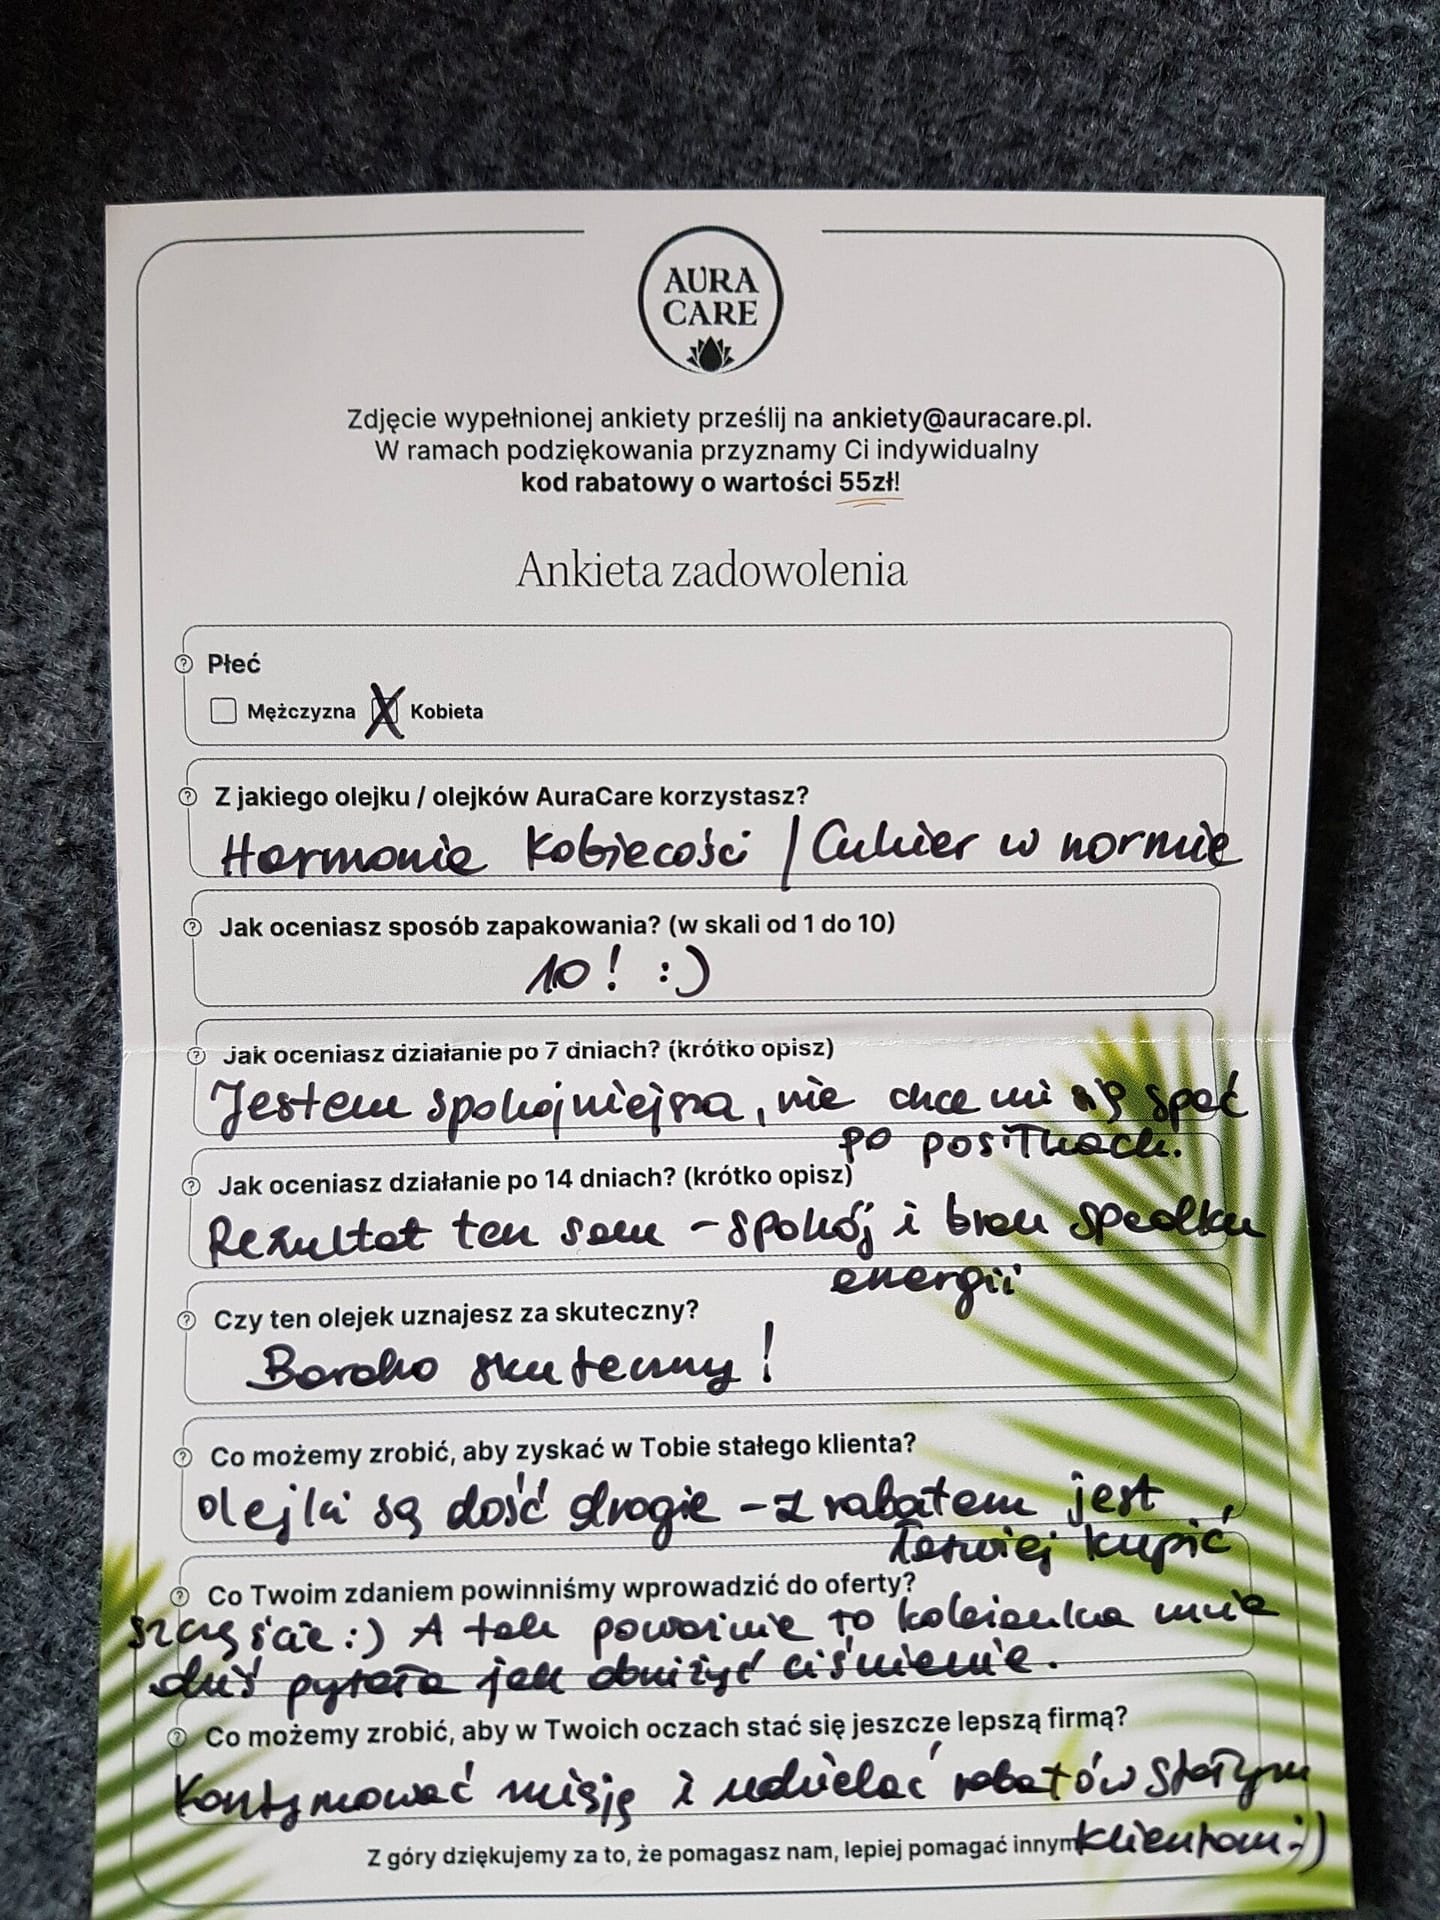 AURA
CARE
Zdjęcie wypełnionej ankiety prześlij na ankiety@auracare.pl.
W ramach podziękowania przyznamy Ci indywidualny
kod rabatowy o wartości 55zł!
Ankieta zadowolenia
Płeć
Mężczyzna X Kobieta
Z jakiego olejku / olejków AuraCare korzystasz?
Harmonia kobiecości / Cukier w normie
Jak oceniasz sposób zapakowania? (w skali od 1 do 10)
10! :)
Jak oceniasz działanie po 7 dniach? (krótko opisz)
Jestem spokojniejsza, nie chce mi się spać
po posiłkach.
Jak oceniasz działanie po 14 dniach? (krótko opisz)
Rezultat ten sam - spokój i brak spadku
energii
Czy ten olejek uznajesz za skuteczny?
Bardzo skuteczny!
Co możemy zrobić, aby zyskać w Tobie stałego klienta?
Olejki są dość drogie - z rabatem jest
łatwiej kupić
Co Twoim zdaniem powinniśmy wprowadzić do oferty?
szczęście :) A tak poważnie to koleżanka mnie
dziś pytała jak obniżyć ciśnienie.
Co możemy zrobić, aby w Twoich oczach stać się jeszcze lepszą firmą?
Kontynuować misję i udzielać rabatów stałym
klientom :)
Z góry dziękujemy za to, że pomagasz nam, lepiej pomagać innym